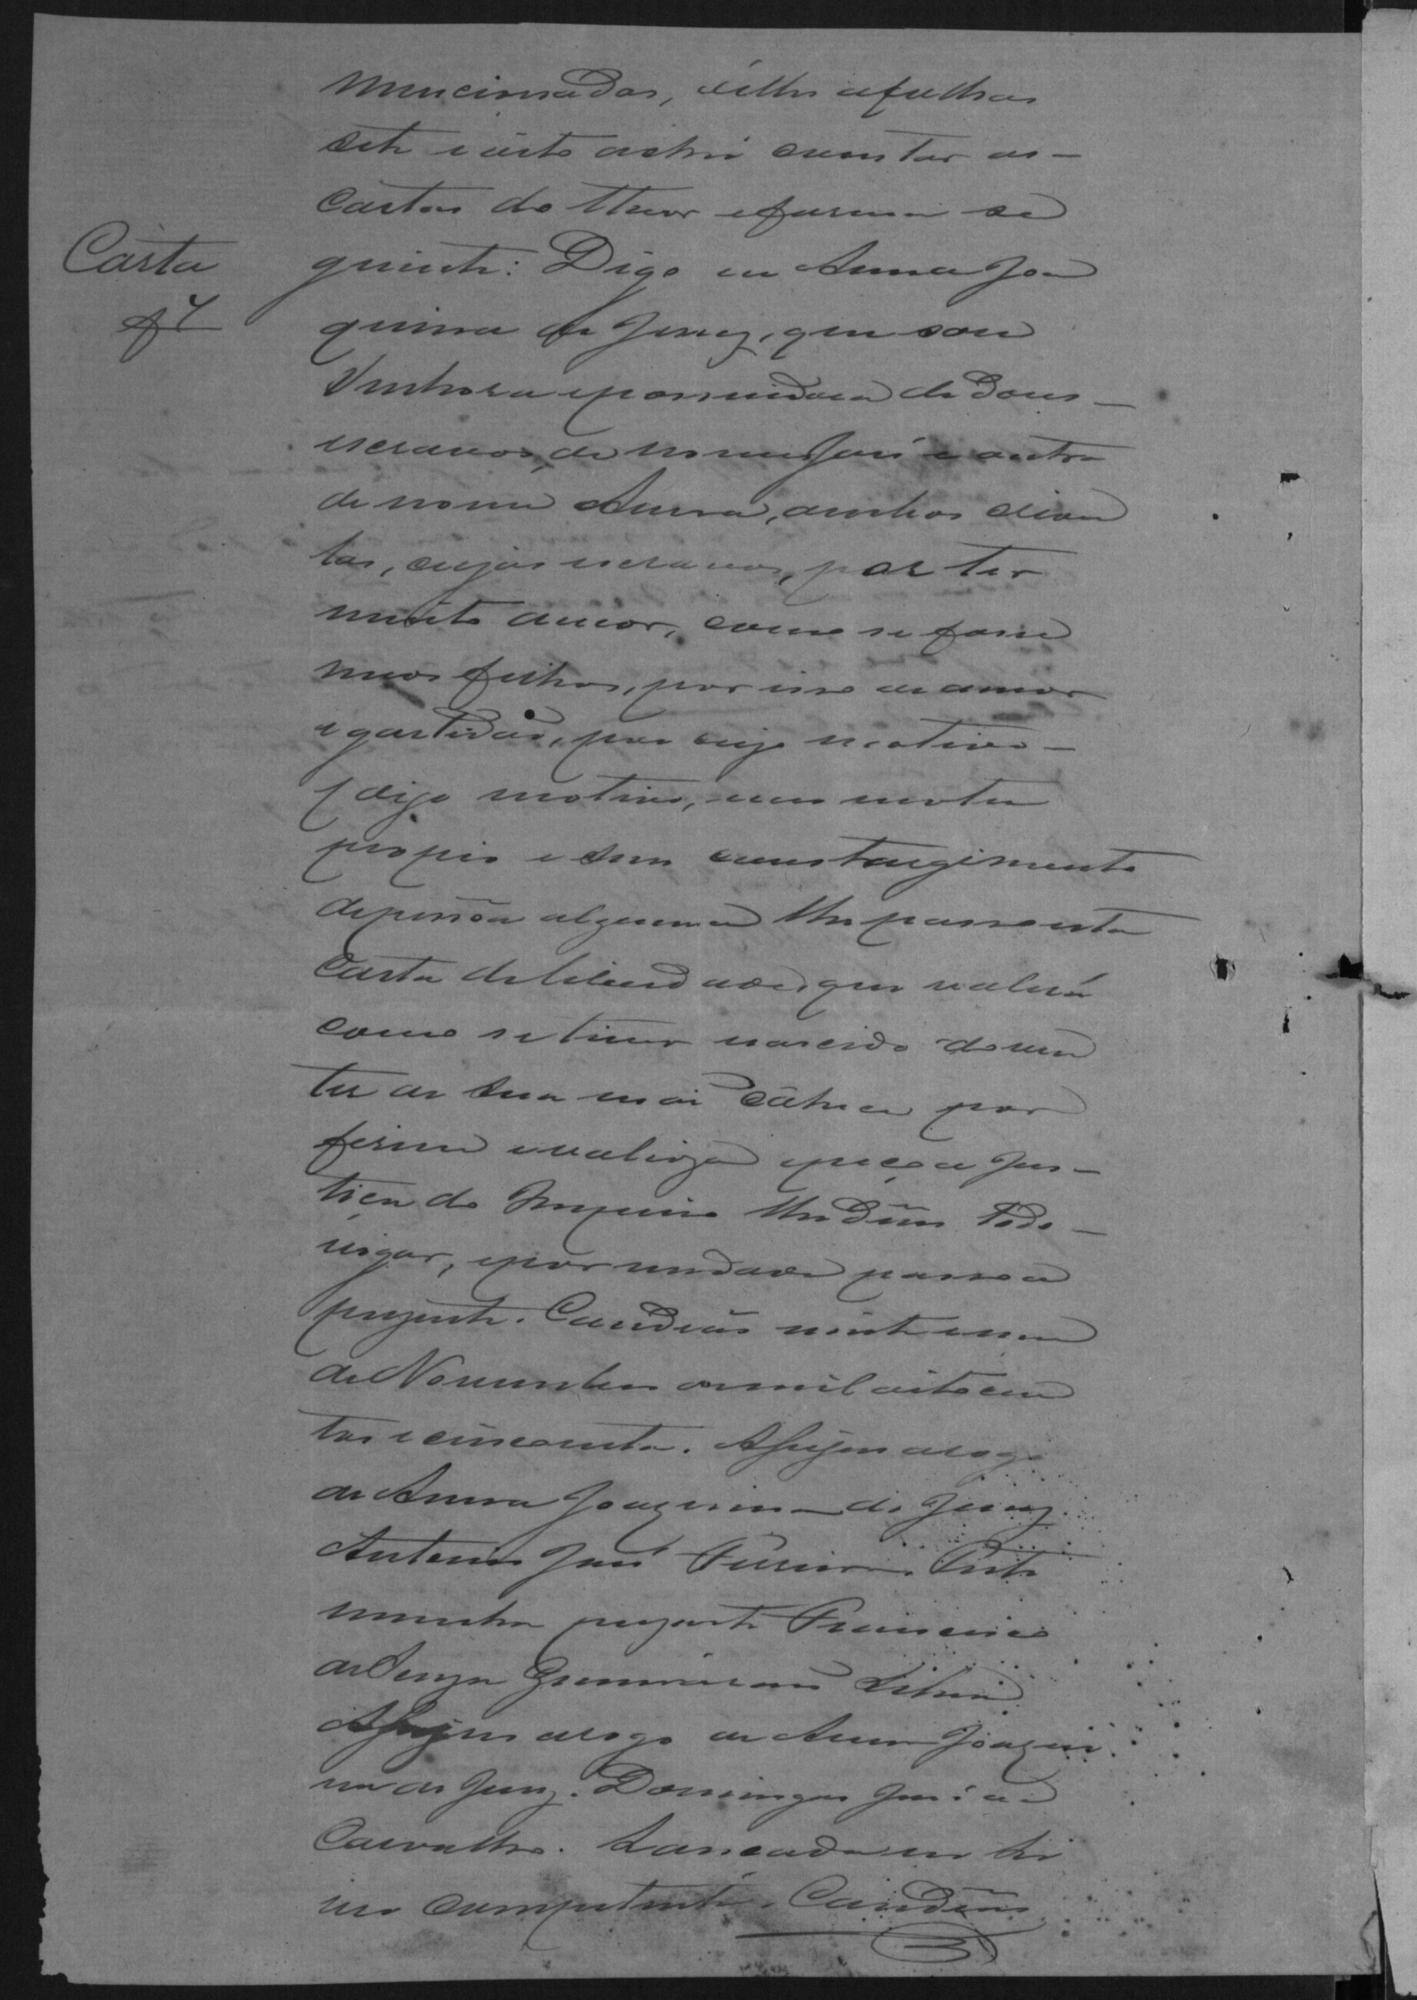 mencionadas, e á folhas
sete e oito achei constar as
cartas do theor e forma se
Carta
guinte: Digo eu Anna Joa
quina de Jesus, que sou
Senhora e possuidora de dous
escravos, de nome José e outra
de nome Anna, ambos criou
los, cujos escravos, por ter
muito amor, como se fosse
meos filhos, por isso de amor
e gartidão, por cujo motivo
digo motivo, meu motu
propio e sem constrangimento
de pessôa alguma lhe passo esta
Carta de liberdade, que valerá
como se tiver nascido do ven
tre de sua mai e a tenha por
firme e valioza e peço a Jus
tiça do Imperio lhe dêm todo
vigor, e por verdade passo a
prezente. Caudêas vinte e um
de Novembro de mil oitocen
tos e cincoenta. Assigno a rogo
de Anna Joaquina de Jesus.
Antonio José Ferreira. Teste
munha prezente Francisco
de Souza
Assigno a rogo de Anna Joaqui
na de Jesus. Domingos José de
Carvalho. Lancada em Li
vro competente. Caudêas